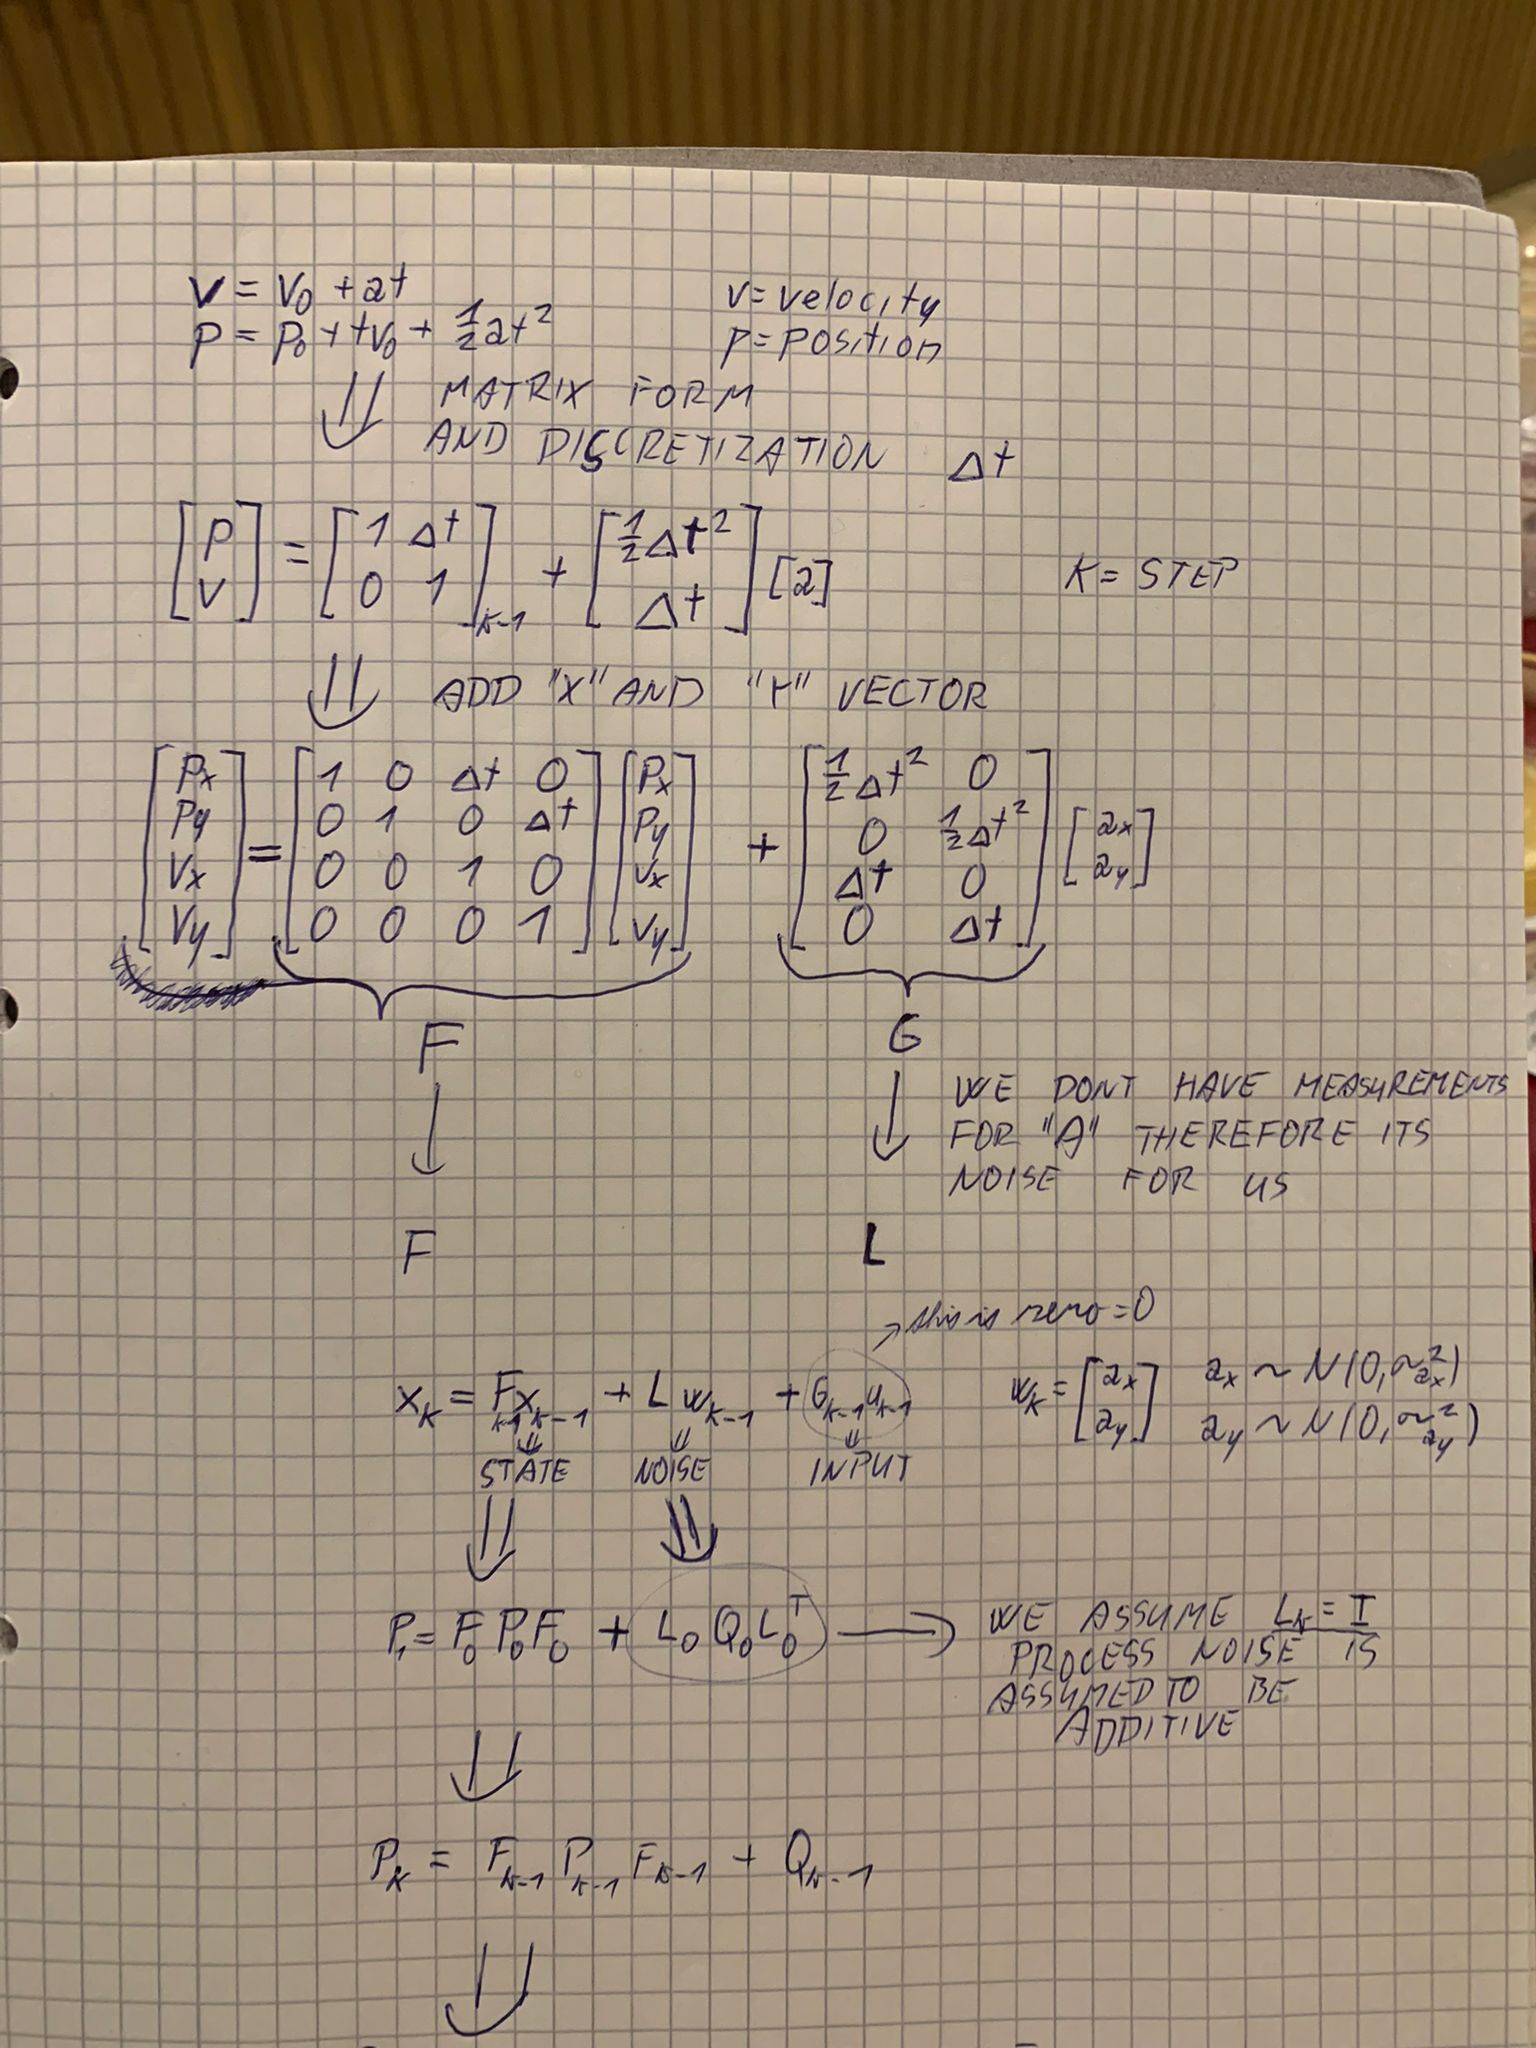 v = v₀ + at
v = velocity
p = p₀ + tv₀ + ½at²
p = position
MATRIX FORM
AND DISCRETIZATION Δt
[p; v] = [1 Δt; 0 1]ₖ₋₁ + [½Δt²; Δt] [a]
K = STEP
ADD "X" AND "Y" VECTOR
[Px; Py; Vx; Vy] = [1 0 Δt 0; 0 1 0 Δt; 0 0 1 0; 0 0 0 1] [Px; Py; Vx; Vy] + [½Δt² 0; 0 ½Δt²; Δt 0; 0 Δt] [ax; ay]
F
G
WE DONT HAVE MEASUREMENTS
FOR "A" THEREFORE ITS
NOISE FOR US
F
L
this is zero = 0
xₖ = Fₖ₋₁xₖ₋₁ + L wₖ₋₁ + Gₖ₋₁uₖ₋₁
wₖ = [ax; ay]
ax ~ N(0, σ²ax)
ay ~ N(0, σ²ay)
STATE NOISE INPUT
P₁ = F₀ P₀ F₀ + L₀ Q₀ L₀ᵀ
WE ASSUME Lₖ = I
PROCESS NOISE IS
ASSUMED TO BE
ADDITIVE
Pₖ = Fₖ₋₁ Pₖ₋₁ Fₖ₋₁ + Qₖ₋₁